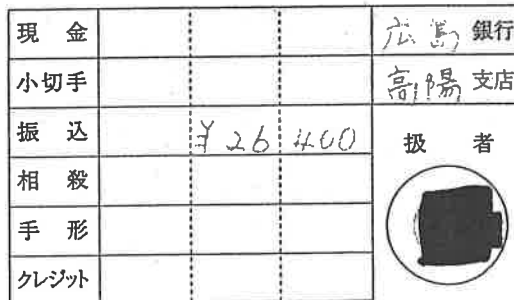 現金
広島 銀行
小切手
高陽 支店
振込 ¥26 400
扱者
相殺
手形
クレジット